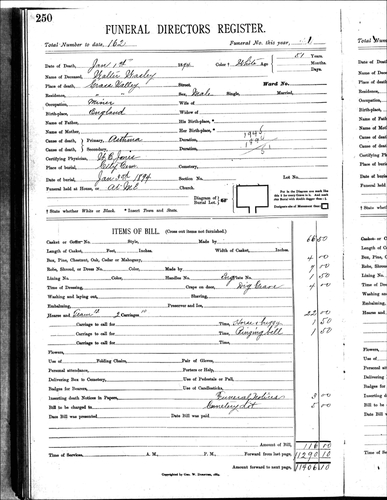 250
FUNERAL DIRECTORS REGISTER.
Total Number to date, 162 Funeral No. this year, 1
Date of Death, Jan 1st 1894 Color † White Age 51 Years. Months. Days.
Name of Deceased, Walter
Place of death, Grass Valley Street. Ward No.
Residence, " Sex, Male Single, Married,
Occupation, Miner Wife of
Birthplace, England Widow of
Name of Father, His Birth-place, *
Name of Mother, Her Birth-place, *
Cause of Death, Primary, Asthma
Cause of Death, Secondary, 189
Certifying Physician, Jones 51
Place of burial, City Cem Cemetery,
Date of burial, Jan 1894 Section No. Lot No.
Funeral held at Home, or at Church.
Diagram of Burial Lot.
Put in the Diagram one mark thus | for every Grave in it. And mark thus with double dagger thus ‡ Designate site of Monument thus
† State whether White or Black. * Insert Town and State.
ITEMS OF BILL. (Cross out items not furnished.)
Casket or Coffin No. Style, Made by 66 50
Length of Casket, Feet, Inches. Width of Casket, Inches.
Box, Pine, Chestnut, Oak, Cedar or Mahogany, 4 00
Robe, Shroud, or Dress No. Made by 7 00
Lining No. Color, Handles No. Plate No. 1 50
Time of Dressing, Crape on door, Dig Grave 4 00
Washing and laying out, Shaving,
Embalming, Preserve and Ice,
Hearse and Team 2 Carriages 22 00
Carriage to call for Time, Horse & buggy 1 50
Carriage to call for Time, Ringing bell 1 50
Carriage to call for Time,
Flowers,
Use of Folding Chairs, Pair of Gloves,
Personal attendance, Porters or Help,
Delivering Box to Cemetery, Use of Pedestals or Fall,
Badges for Bearers, Use of Candlesticks,
Inserting death Notices in Papers, Funeral Notices 3 00
Bill to be charged to Cemetery Lot 5 00
Date Bill was presented Date Bill was paid
Amount of Bill, 116 10
Time of Services, A. M., P. M. Forward from last page, 11290 10
Amount forward to next page, 11406 10